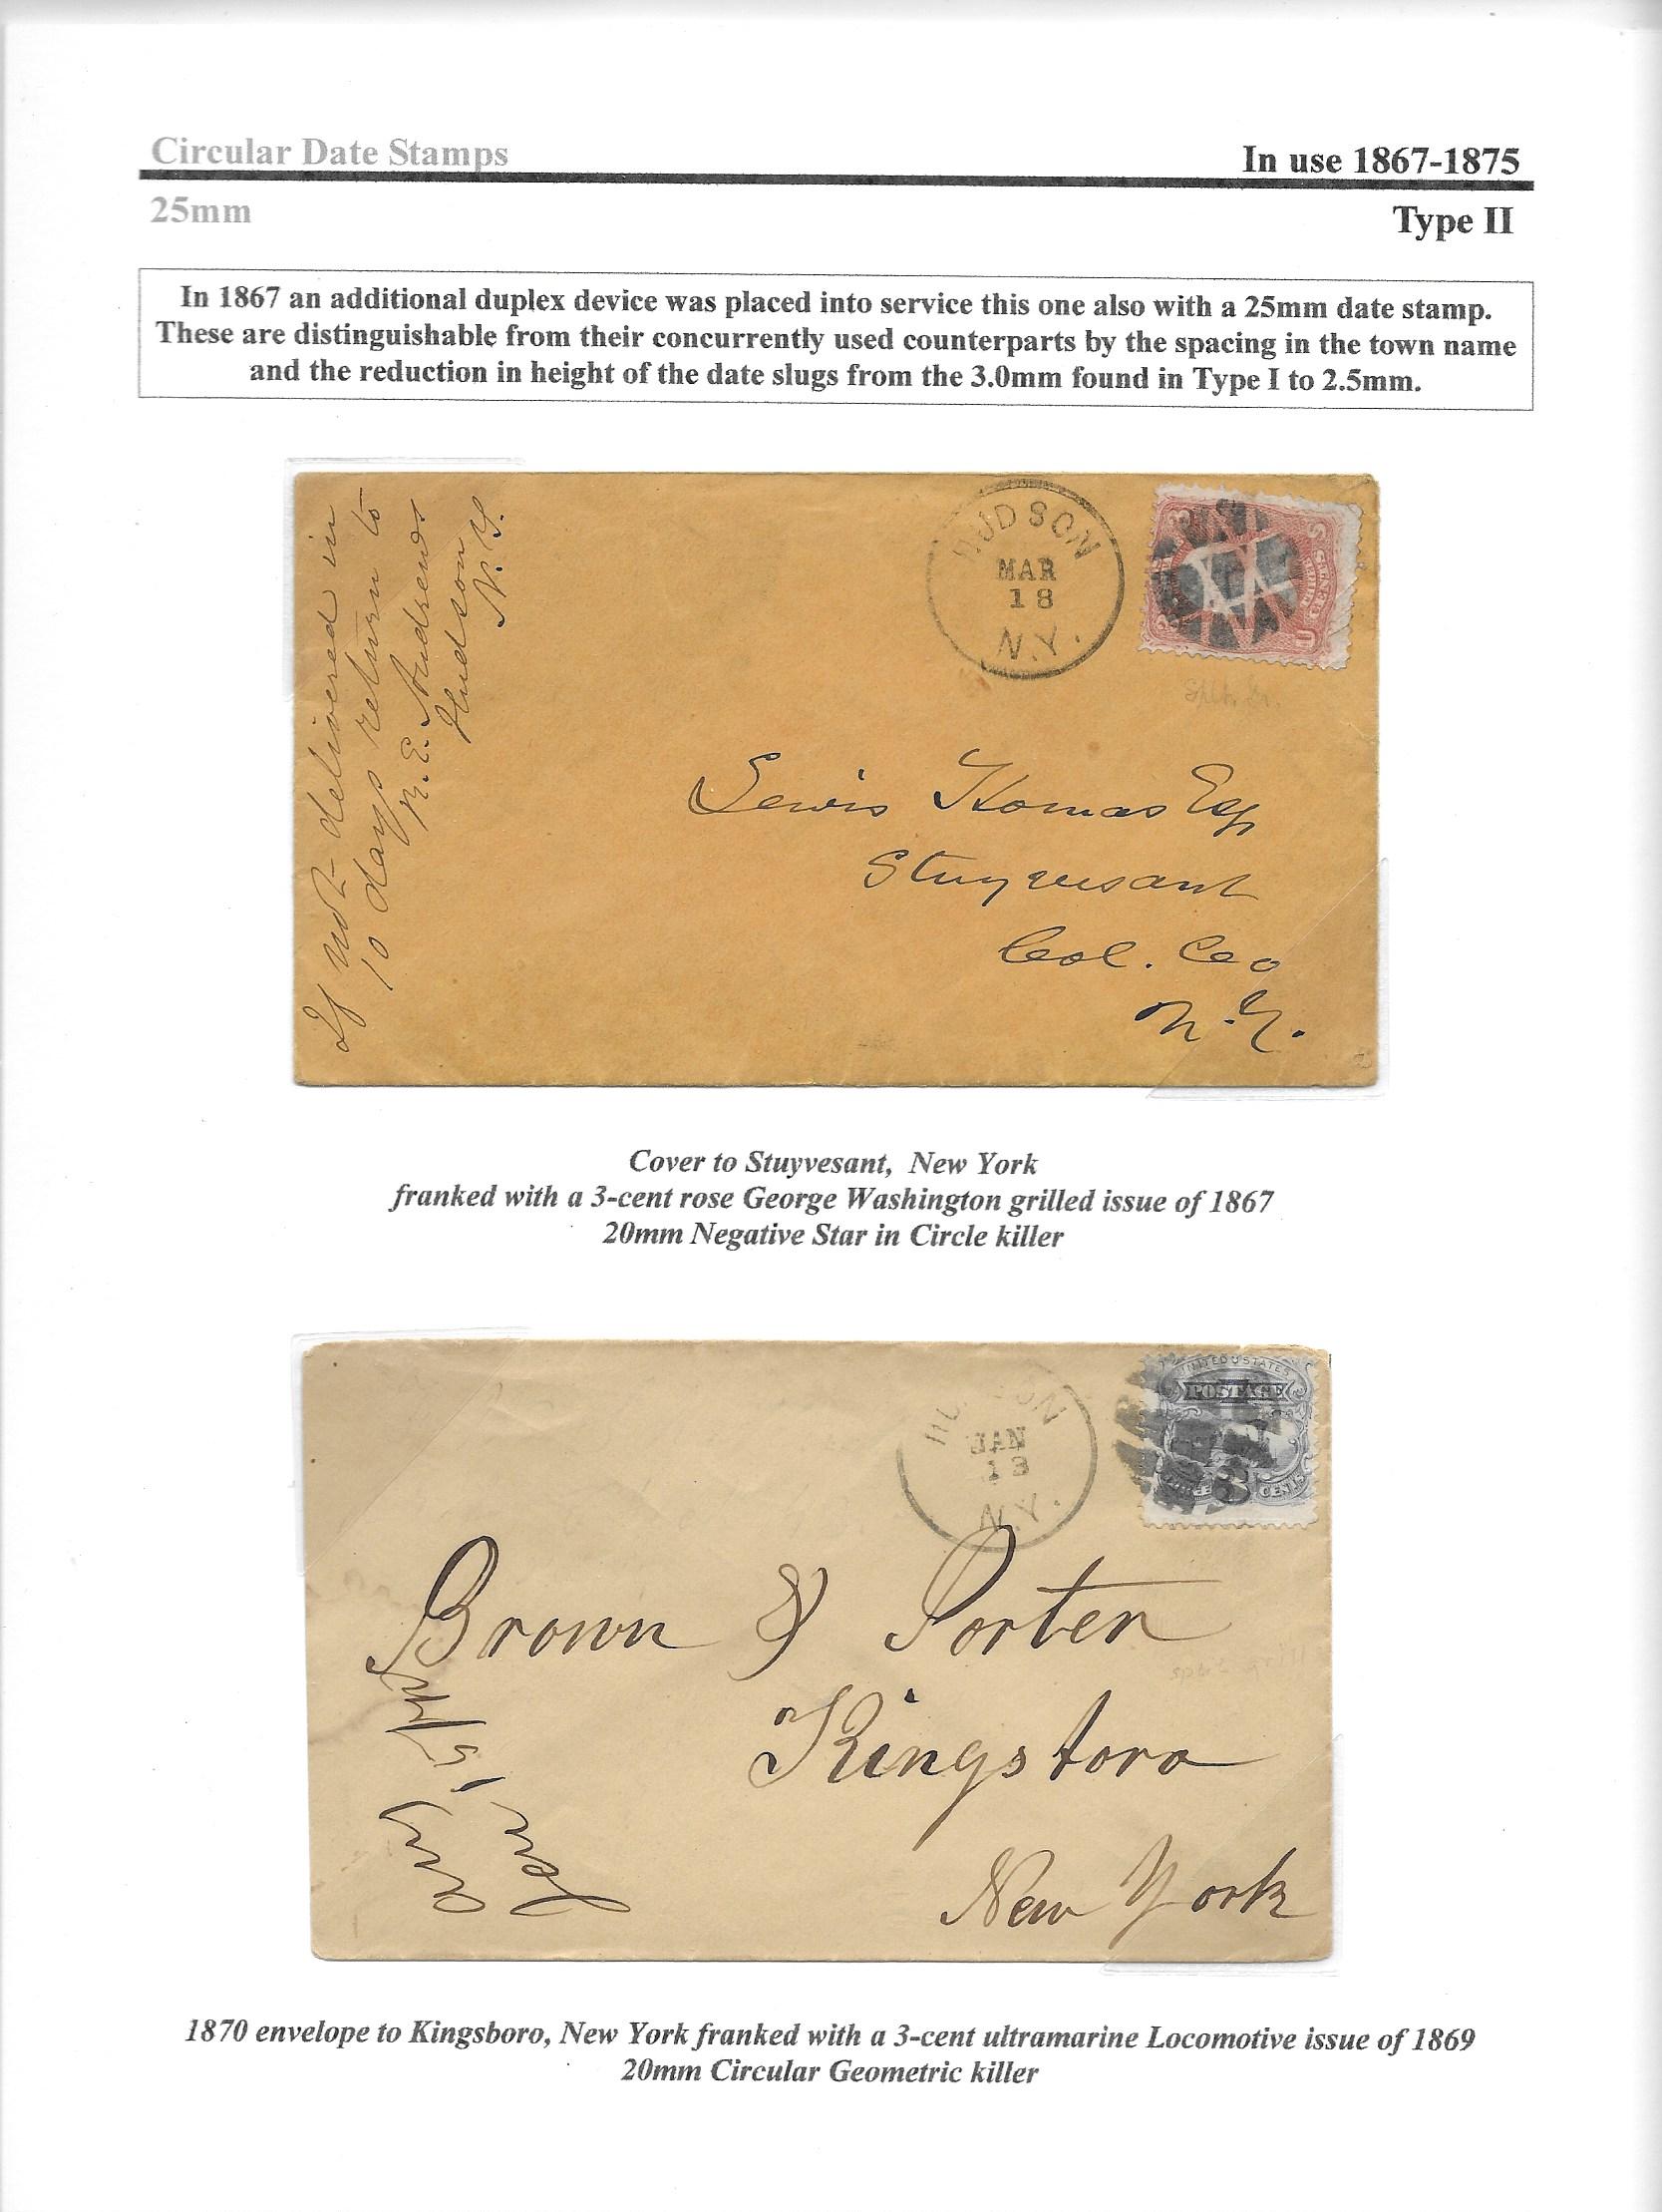 Circular Date Stamps
In use 1867-1875
25mm
Type II
In 1867 an additional duplex device was placed into service this one also with a 25mm date stamp.
These are distinguishable from their concurrently used counterparts by the spacing in the town name
and the reduction in height of the date slugs from the 3.0mm found in Type I to 2.5mm.
If not delivered in
10 days return to
R. E. Andrews
Hudson
N. Y.
HUDSON
MAR
18
N.Y.
Lewis Thomas Esq
Stuyvesant
Col. Co
N.Y.
Cover to Stuyvesant, New York
franked with a 3-cent rose George Washington grilled issue of 1867
20mm Negative Star in Circle killer
HUDSON
JAN
13
N.Y.
UNITED STATES
POSTAGE
3
CENTS
Brown & Porter
Kingsboro
New York
1870 envelope to Kingsboro, New York franked with a 3-cent ultramarine Locomotive issue of 1869
20mm Circular Geometric killer